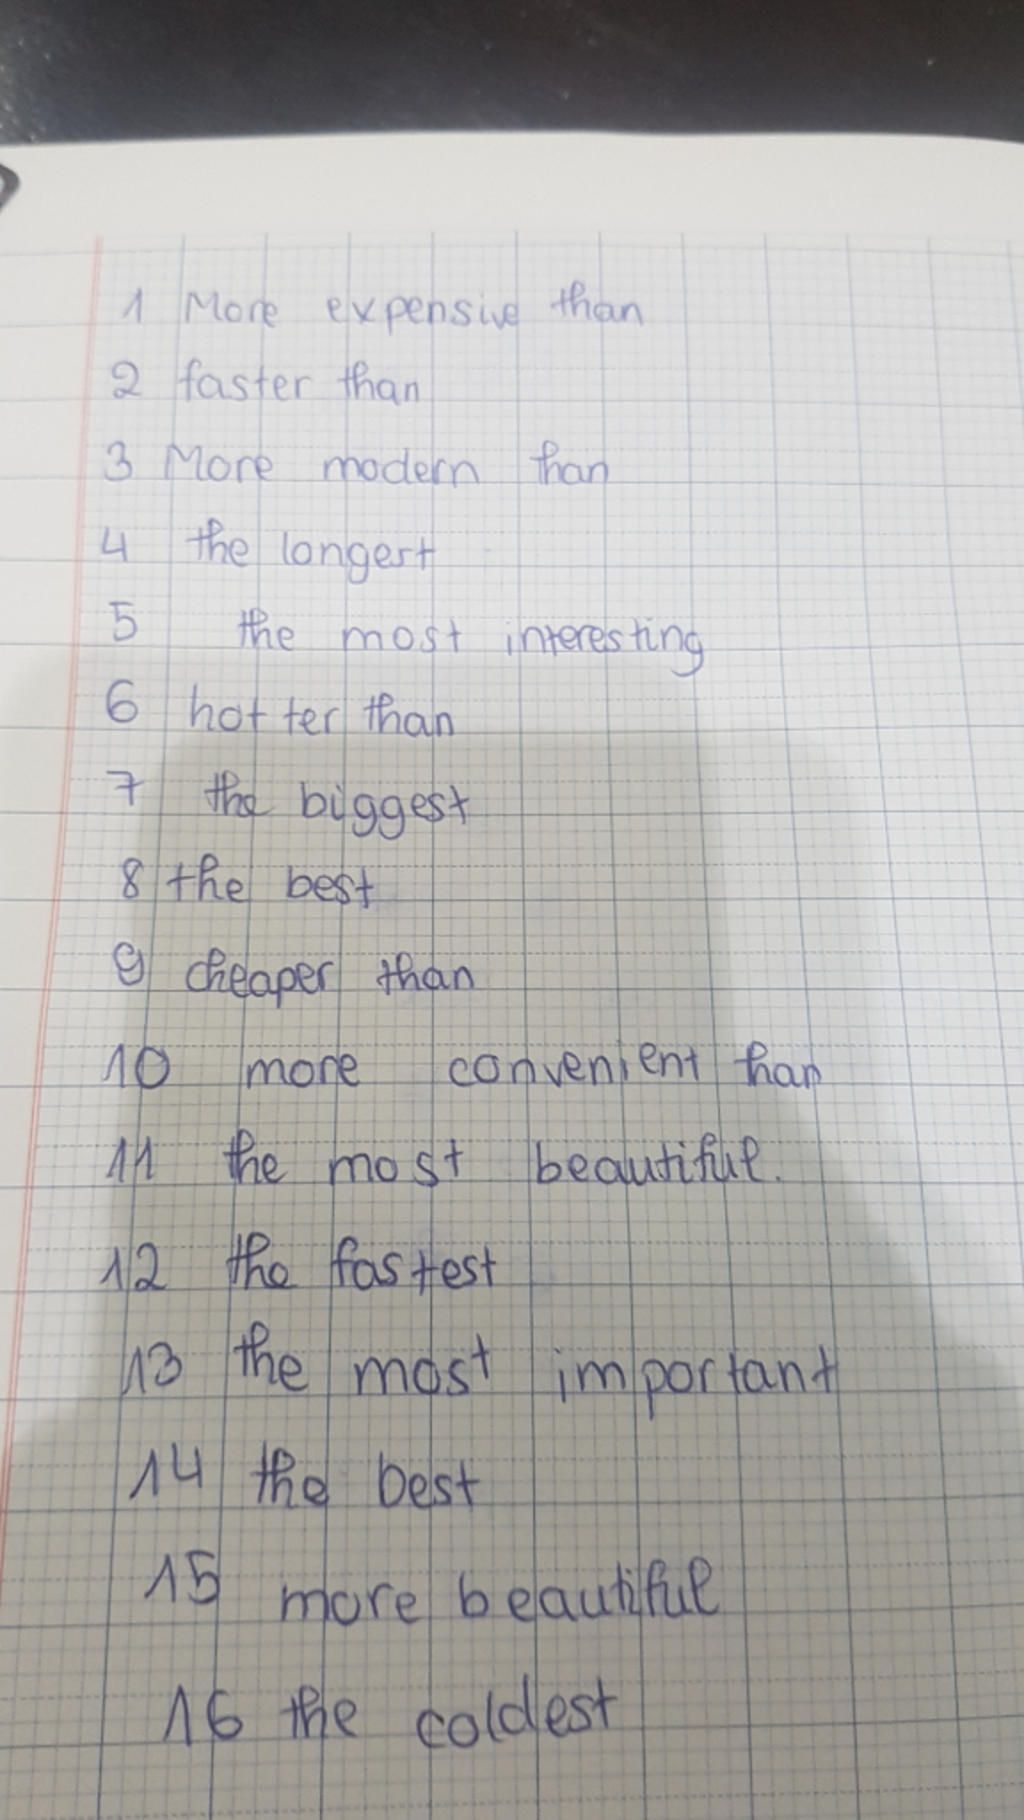 1 More expensive than
2 faster than
3 More modern than
4 the longest
5 the most interesting
6 hotter than
7 the biggest
8 the best
9 cheaper than
10 more convenient than
11 the most beautiful.
12 the fastest
13 the most important
14 the best
15 more beautiful
16 the coldest